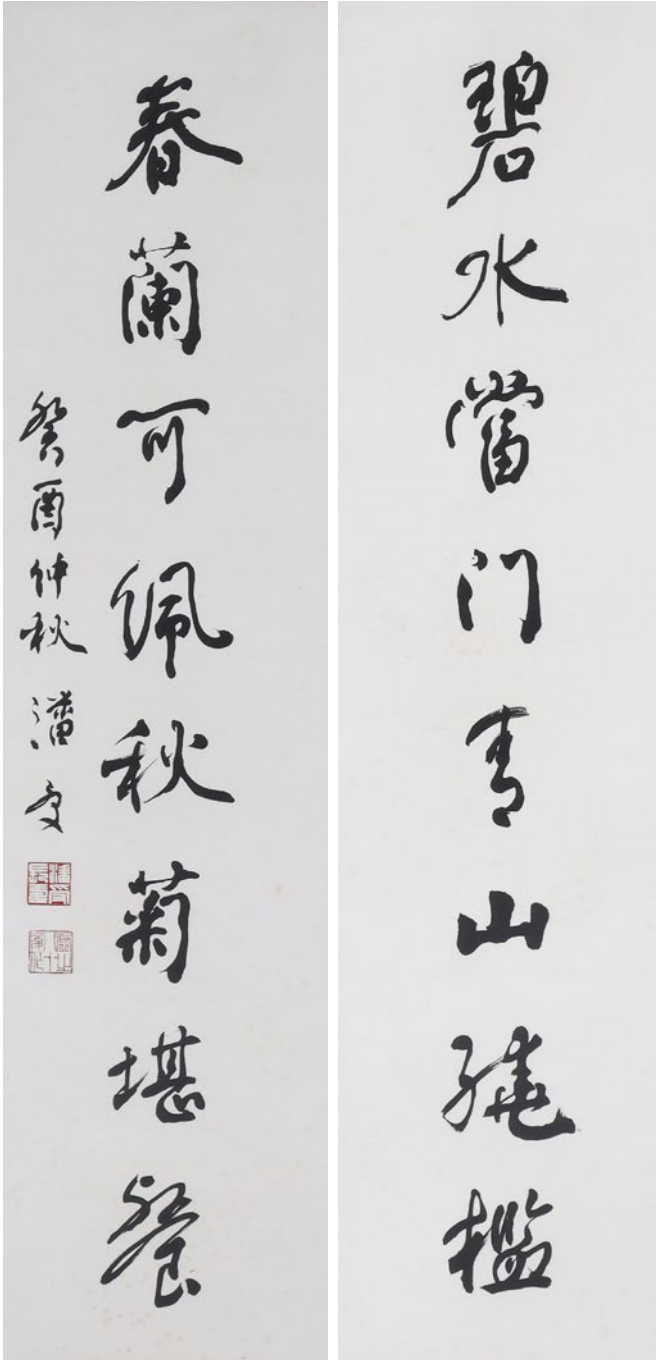 碧水當門青山繞檻
春蘭可佩秋菊堪餐
癸酉仲秋 潘受